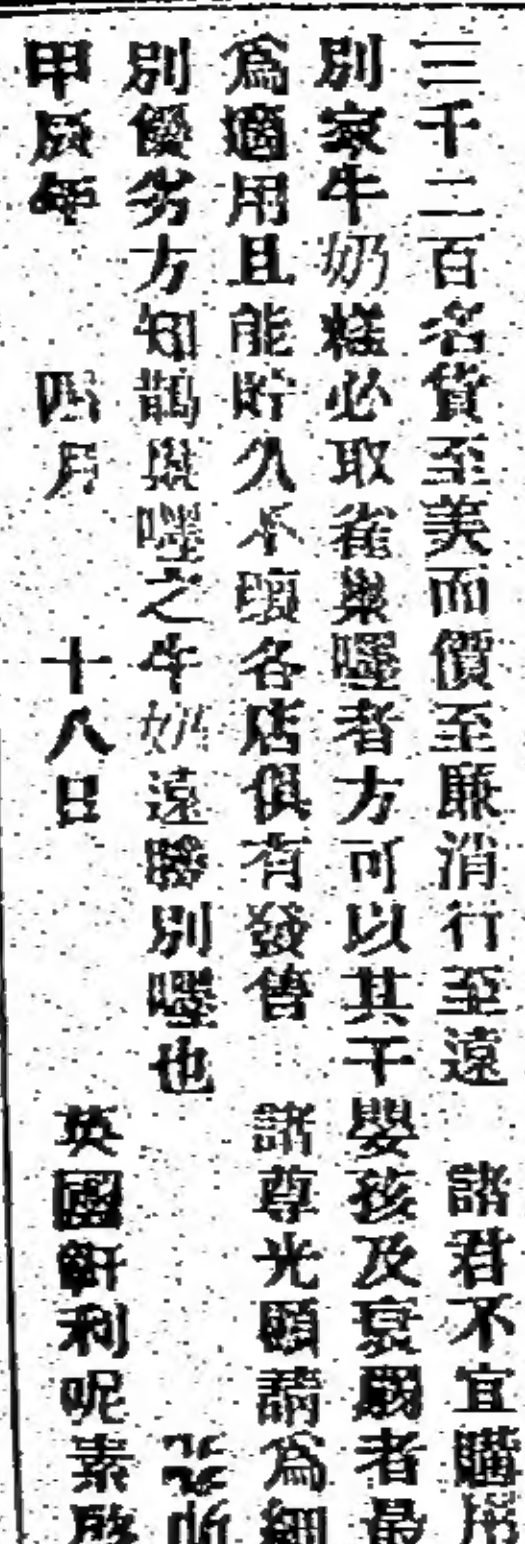 三千二百名貨至美而價至廉消行至遠　諸君不宜購用
別家牛奶糕必取雀巢嘜者方可以其于嬰孩及衰弱者最
為適用且能貯久不壞各店俱有發售　諸尊光顧請為細
別優劣方知鵲巢嘜之牛奶遠勝別嘜也
甲辰年　四月　十八日　英國軒利呢素啟